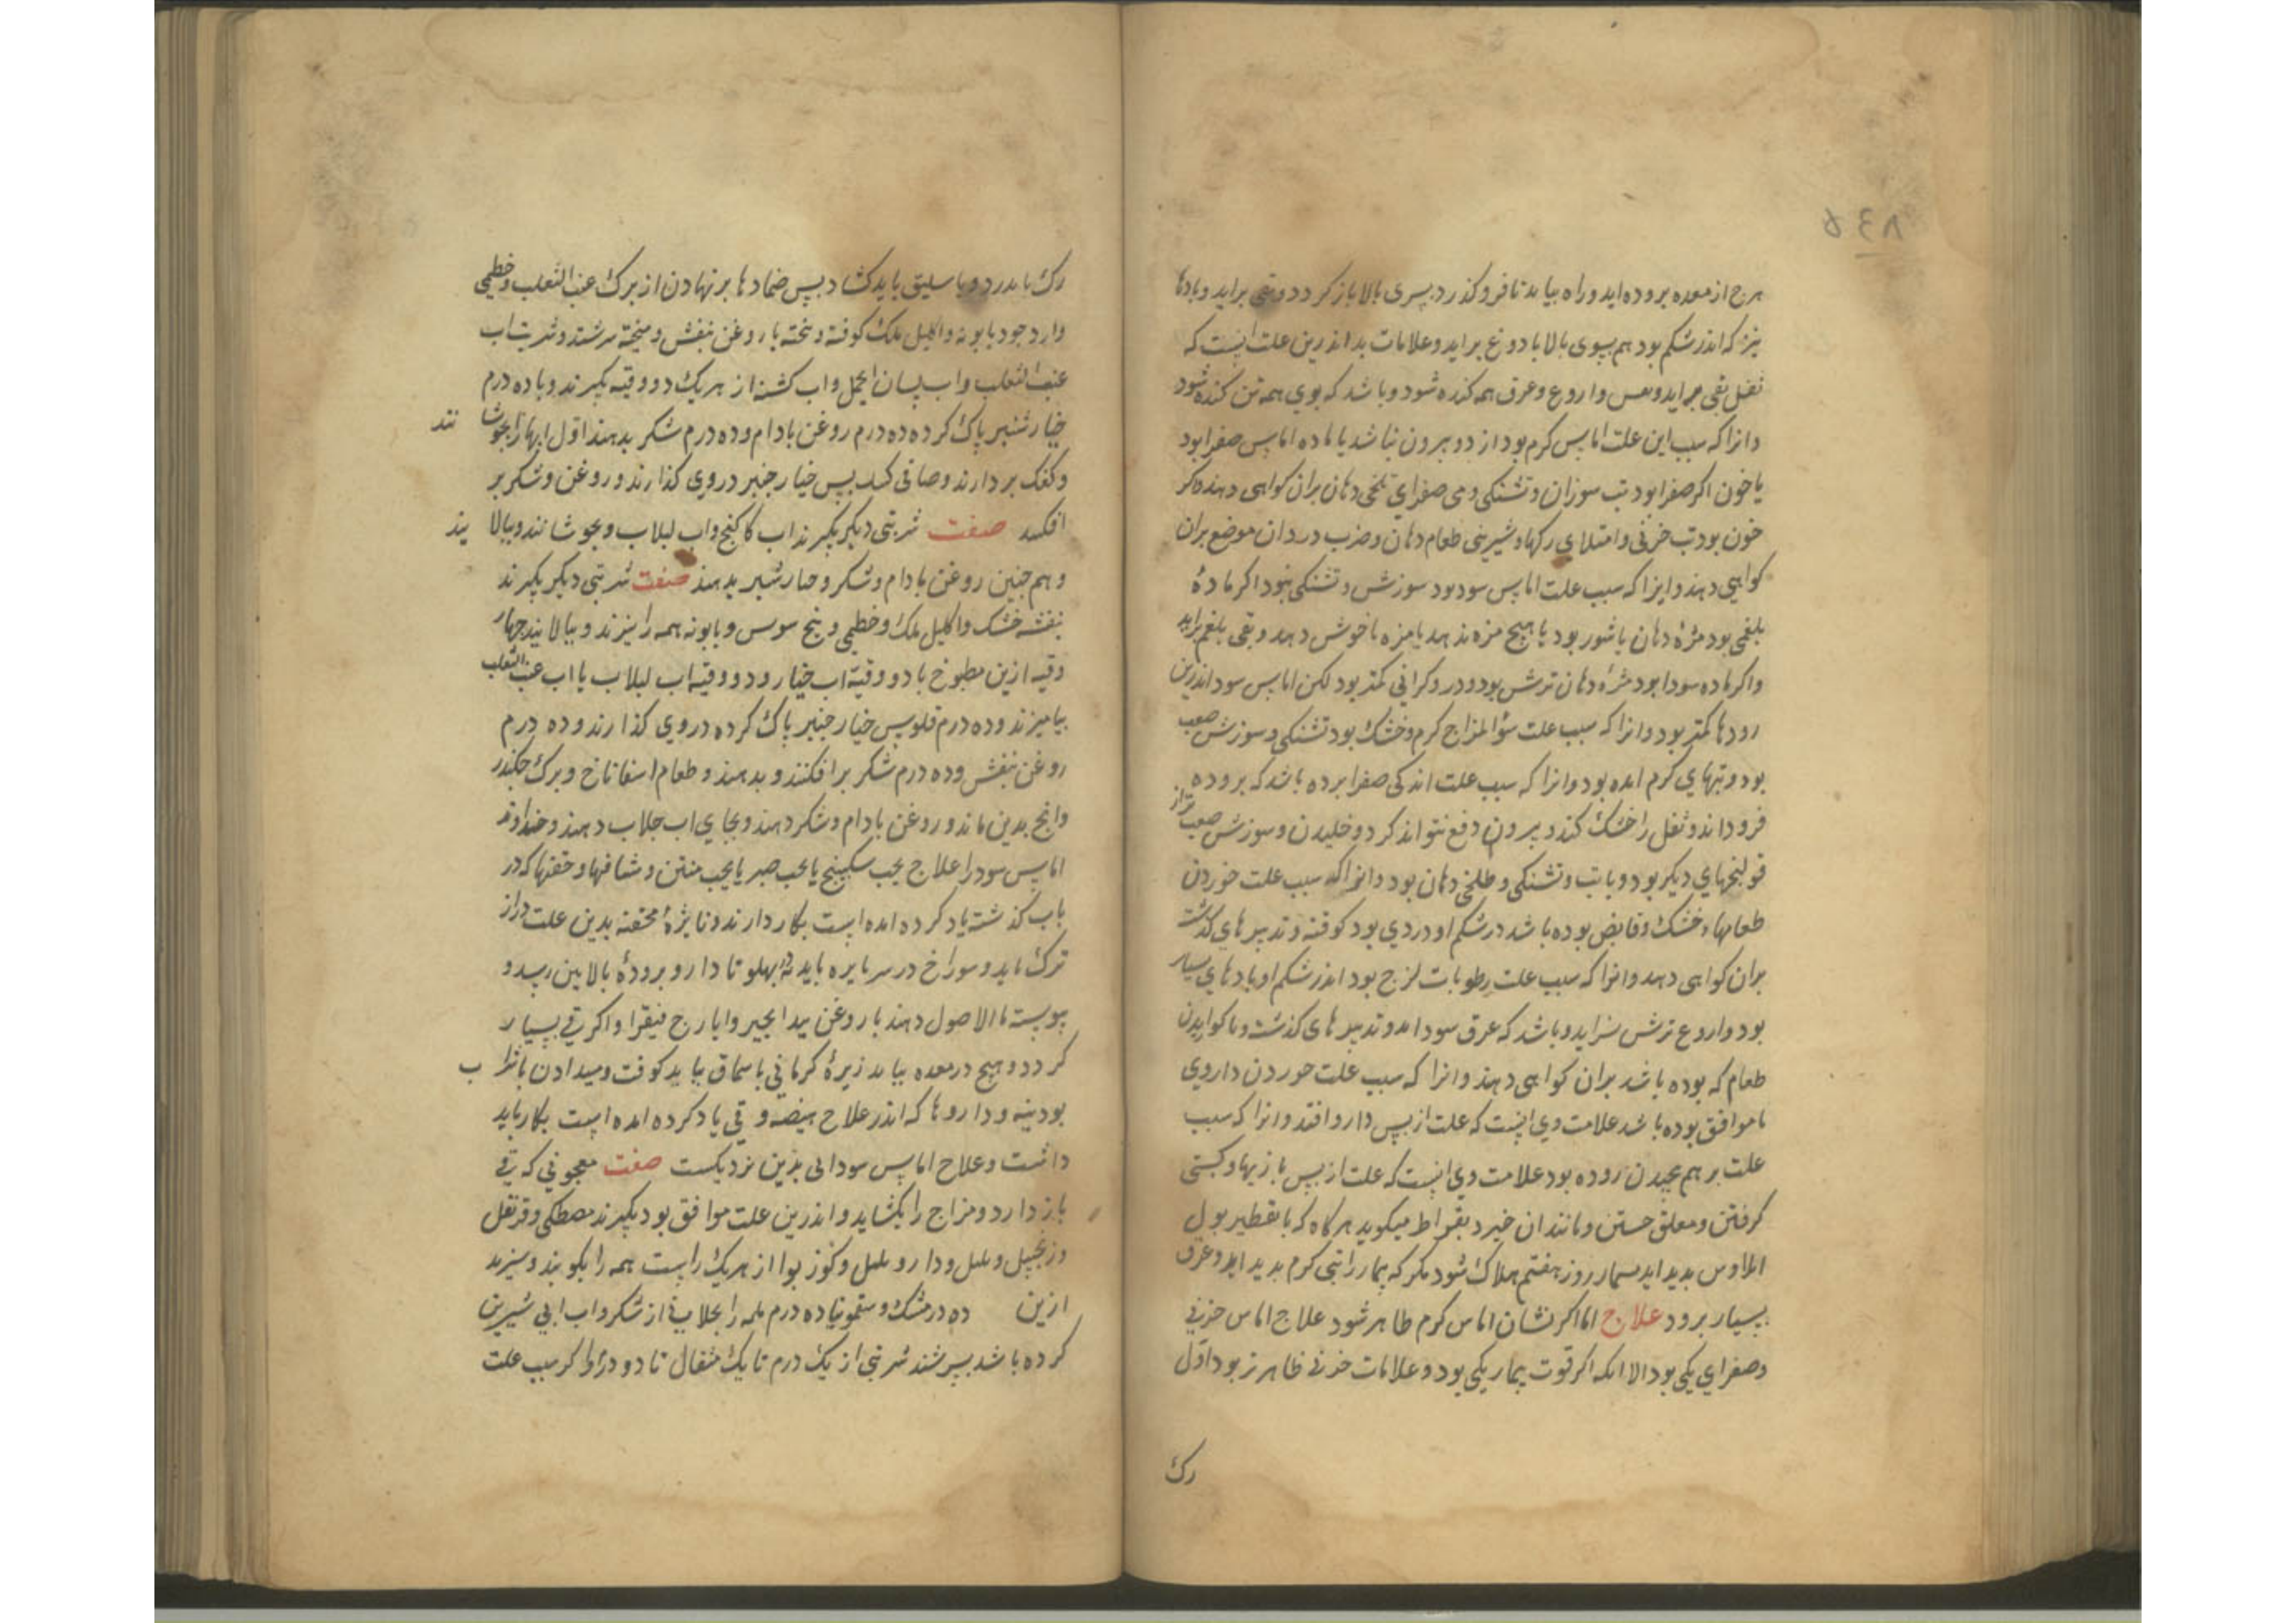 ۸۳۵
هرچ از معده بروده اید و راه بیابد تا فرو کذرد بسوی بالا باز کردد و بقی براید و بادها
نیز که اندر شکم بود هم بسوی بالا با دوغ براید و علامات بد اندرین علت انست که
ثفل بقی براید و نفس و اروغ و عرق همه کنده شود و باشد که بوی همه تن کنده شود
و انرا که سبب این علت اماس کرم بود از دو بیرون نباشد یا ماده اماس صفرا بود
یا خون اکر صفرا بود تب سوزان و تشنکی و می صفرای تلخی دهان بران کواهی دهند و کر
خون بود تب خونی و امتلای رکها و شیرینی طعام دهان و ضرب در دان موضع بران
کواهی دهند و انرا که سبب علت اماس سود بود سوزش و تشنکی نبود اکر مادهٔ
بلغمی بود مزهٔ دهان یا شور بود یا هیچ مزه ندهد یا مزه ناخوش دهد و بقی بلغم براید
و اکر ماده سودا بود مزهٔ دهان ترش بود و درد و کرانی کمتر بود لکن اماس سودا اندرین
رودها کمتر بود و انرا که سبب علت سؤ المزاج کرم و خشک بود تشنکی و سوزش صعب
بود و تبهای کرم امده بود و انرا که سبب علت اندکی صفرا برده باشد که بروده
فرود اند و ثفل را خشک کند و بیرون دفع نتواند کرد و خلیدن و سوزش صعب‌تر از
قولنجهای دیکر بود و با تب و تشنکی و طلخی دهان بود و انرا که سبب علت خوردن
طعامهاء خشک و قابض بوده باشد در شکم او دردی بود کوفته و تدبیرهای کذشته
بران کواهی دهد و انرا که سبب علت رطوبات لزج بود اندر شکم او بادهای بسیار
بود و اروغ ترش براید و باشد که عرق سود امد و تدبیرهای کذشته و نا کواریدن
طعام که بوده باشد بران کواهی دهند و انرا که سبب علت خوردن داروی
ناموافق بوده باشد علامت وی انست که علت از بس دارو افتد و انرا که سبب
علت بر هم بیچیدن روده بود علامت وی انست که علت از بس بازیها و کشتی
کرفتن و معلق جستن و مانند ان خیزد بقراط میکوید هرکاه که با تقطیر بول
ایلاوس بدید اید بیمار روز هفتم هلاک شود مکر که بیمار را تبی کرم بدید اید و عرق
بسیار برود علاج اما اکر نشان اماس کرم ظاهر شود علاج اماس خونی
و صفرای یکی بود الا انکه اکر قوت بیمار یکی بود و علامات خونی ظاهرتر بود اول
رک
رک مابدرد و باسلیق باید کشاد بس ضمادها بر نهادن از برک عنب الثعلب و خطمی
و ارد جو و بابونه و اکلیل ملک کوفته و پخته با روغن بنفش و میخته سرشته و شربت اب
عنب الثعلب و اب لسان الحمل و اب کشنه از هر یک دو وقیه بکیرند و با ده درم
خیارشنبر پاک کرده ده درم روغن بادام و ده درم شکر بدهند اول ابها را بجوشا نند
و کفک بردارند و صافی کنند بس خیارجنبر در وی کذارند و روغن و شکر بر
افکنند صفت شربتی دیکر بکیرند اب کاکنج و اب لبلاب و بجوشانند و ببالا یند
و هم جنین روغن بادام و شکر و خیارشنبر بدهند صفت شربتی دیکر بکیرند
بنفشه خشک و اکلیل ملک و خطمی و بیخ سوس و بابونه همه را بپزند و ببالایند جهار
وقیه ازین مطبوخ با دو وقیه اب خیار و دو وقیه اب لبلاب یا اب عنب الثعلب
بیامیزند و ده درم فلوس خیارجنبر پاک کرده در وی کذارند و ده درم
روغن بنفش و ده درم شکر بر افکنند و بدهند و طعام اسفاناخ و برک جکندر
و انج بدین ماند و روغن بادام و شکر دهند و بجای اب جلاب دهند و خداوند
اماس سود را علاج بحب سکبینج یا بحب صبر یا بحب منتن و شافها و حقنها که در
باب کذشته یاد کرده امده است بکار دارند و نایژهٔ محقنه بدین علت دراز
ترک باید و سوراخ در سر نایزه باید نه بهلو تا دارو برودهٔ بالایین رسد و
پیوسته ماء الاصول دهند با روغن بید انجیر و ایارج فیقرا و اکر قی بسیار
کردد و هیچ در معده بیابد زیرهٔ کرمانی با سماق بباید کوفت و میدادن با شرا ب
بودینه و داروها که اندر علاج هیضه و قی یاد کرده امده است بکار باید
داشت و علاج اماس سودائی بدین نزدیکست صفت معجونی که قی
باز دارد و مزاج را بکشاید و اندرین علت موافق بود بکیرند مصطکی و قرنفل
و زنجبیل و بلبل و دارو بلبل و کوز بوا از هر یک راست همه را بکوبند و ببیزند
ازین ده درمشک و سقمونیا ده درم همه را بجلابی از شکر و اب ابی شیرین
کرده باشد بسرشند شربتی از یک درم تا یک مثقال تا دو درم و اکر سبب علت